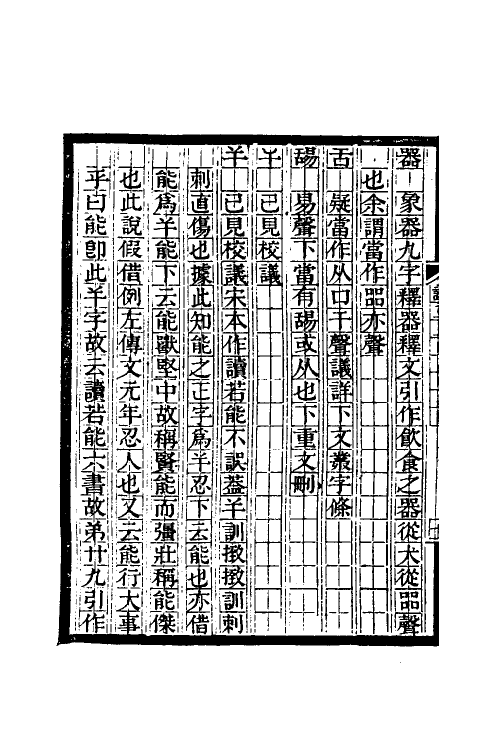 器 象器九字釋器釋文引作飲食之器從犬從㗊聲
也余謂當作㗊亦聲
舌 疑當作从口干聲議詳下文叢字條
䑛 易聲下當有䑛或从也下重文刪
𢆉 已見校議
𢆉 已見校議宋本作讀若能不誤葢𢆉訓㨖㨖訓刺
刺直傷也據此知能之正字爲𢆉忍下云能也亦借
能爲𢆉能下云能獸堅中故稱賢能而彊壯稱能傑
也此說假借例左傳文元年忍人也又云能行大事
乎曰能卽此𢆉字故云讀若能六書故弟廿九引作